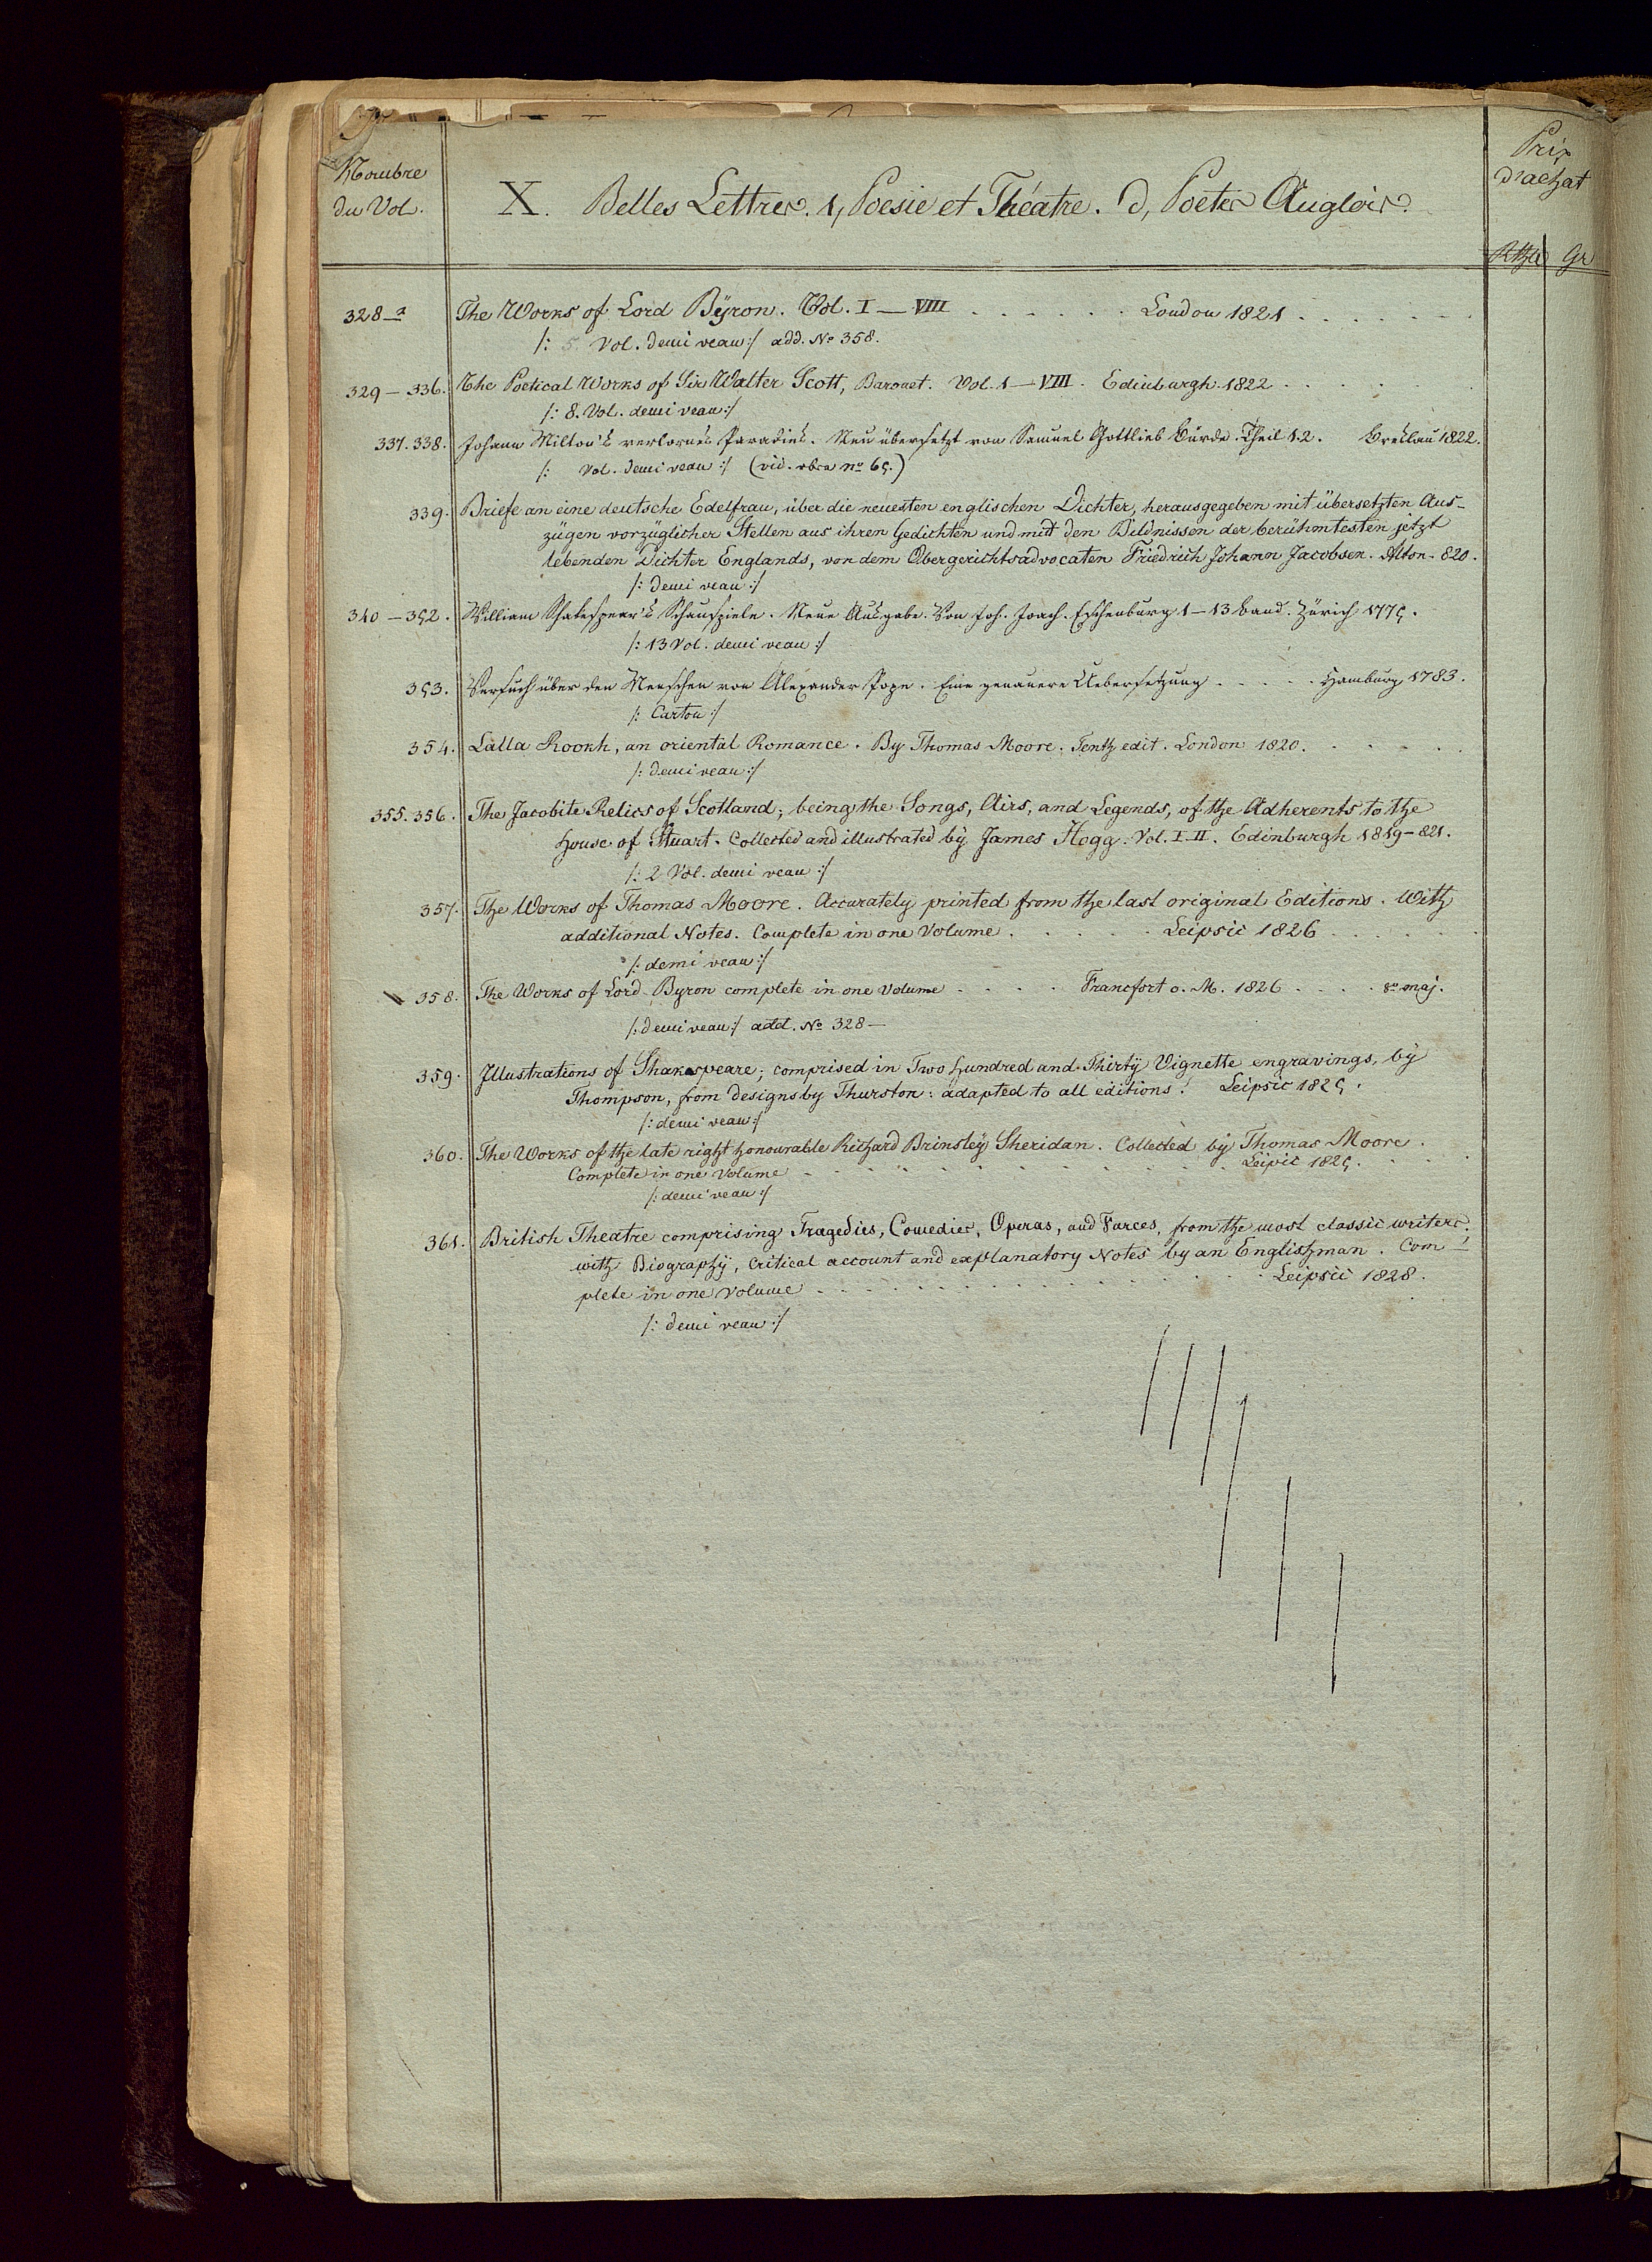 Nombre
du Vol.
X. Belles Lettres. 1, Poesie et Théatre. d, Poetes Anglois.
Prix
d'achat
Rthlr Gr
328-a The Works of Lord Byron. Vol. I — VIII . . . . . . London 1821 . . . . . . .
/: 5 Vol. demi veau :/ add. No 358.
329 – 336. The Poetical Works of Sir Walter Scott, Baronet. Vol. 1 – VIII. Edinburgh. 1822 . . . . .
/: 8. Vol. demi veau :/
337. 338. Johann Milton's verlornes Paradies. Neu übersetzt von Samuel Gottlieb Bürde. Theil 1. 2. Breslau 1822.
/: Vol. demi veau :/ (vid. obra no 65.)
339. Briefe an eine deutsche Edelfrau, über die neuesten englischen Dichter, herausgegeben mit übersetzten Aus-
zügen vorzüglicher Stellen aus ihren Gedichten und mit den Bildnissen der berühmtesten jetzt
lebenden Dichter Englands, von dem Obergerichtsadvocaten Friedrich Johann Jacobsen. Alton. 820.
/: demi veau :/
340 – 352. William Schakespear's Schauspiele. Neue Ausgabe. Von Joh. Joach. Eschenburg 1 – 13 Band. Zürich 1775.
/: 13 Vol. demi veau :/
353. Versuch über den Menschen von Alexander Pope. Eine genauere Uebersetzung . . . . . Hamburg 1783.
/: Carton :/
354. Lalla Rookh, an oriental Romance. By Thomas Moore. Tenth edit. London 1820. . . . . .
/: demi veau :/
355. 356. The Jacobite Relics of Scotland; being the Songs, Airs, and Legends, of the Adherents to the
house of Stuart. Collected and illustrated by James Hogg. Vol. I. II. Edinburgh 1819 – 821.
/: 2 Vol. demi veau :/
357. The Works of Thomas Moore. Accurately printed from the last original Editions. With
additional Notes. Complete in one Volume . . . . . Leipsic 1826 . . . . . .
/: demi veau :/
358. The Works of Lord Byron complete in one volume . . . . Francfort o. M. 1826 . . . . 8o maj.
/: demi veau :/ add. No 328 —
359. Illustrations of Shakespeare; comprised in Two hundred and Thirty Vignette engravings, by
Thompson, from designs by Thurston: adapted to all editions. Leipsic 1825.
/: demi veau :/
360. The Works of the late right honourable Richard Brinsley Sheridan. Collected by Thomas Moore.
Complete in one Volume . . . . . . . . . . . . Leipsic 1825. . . .
/: demi veau :/
361. British Theatre comprising Tragedies, Comedies, Operas, and Farces, from the most classic writers,
with Biography, Critical account and explanatory Notes by an Englishman. Com-
plete in one Volume . . . . . . . . . . . . . . Leipsic 1828.
/: demi veau :/